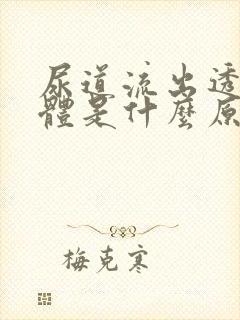 尿道流出透
體是什麼原
梅克寒